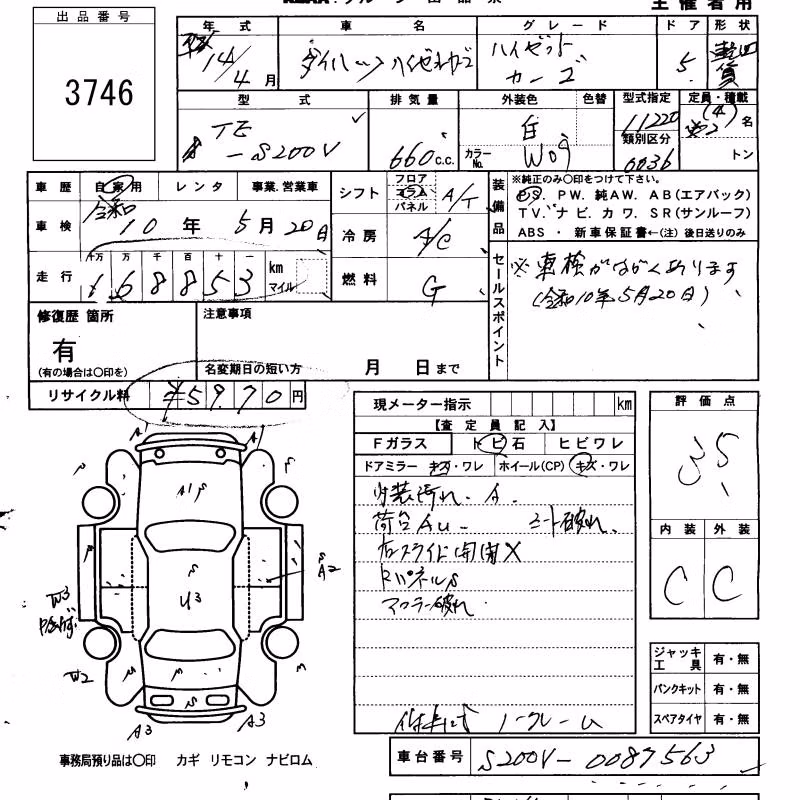 主催者用
出品番号
3746
年式 車名 グレード ドア 形状
14/4月 ダイハツ ハイゼットカーゴ ハイゼットカーゴ 5 軽四貨
型式 排気量 外装色 色替 型式指定 定員・積載
TE-S200V 660c.c. 白 11220 (4) 2名
カラーNo. W09 類別区分 0036 トン
車歴 自家用 レンタ 事業.営業車
車検 令和10年5月20日
走行 十万 万 千 百 十 一 km マイル
168853
シフト フロア コラム パネル A/T
冷房 A/C
燃料 G
装備品
※純正のみ〇印をつけて下さい。
PS. PW. 純AW. AB(エアバック)
TV. ナビ. カワ. SR(サンルーフ)
ABS ・ 新車保証書←(注) 後日送りのみ
セールスポイント
※車検がながくあります
(令和10年5月20日)
修復歴 箇所
有
(有の場合は〇印を)
注意事項
名変期日の短い方 月 日まで
リサイクル料 ¥5970円
現メーター指示 km
【査定員記入】
Fガラス トビ石 ヒビワレ
ドアミラー キズ・ワレ ホイール(CP) キズ・ワレ
内装汚れ. A.
荷台Au シート破れ.
右スライド開閉X
マフラー破れ
ノークレーム
評価点
3.5
内装 外装
C C
ジャッキ工具 有・無
パンクキット 有・無
スペアタイヤ 有・無
A A
A1
A2
U3
W3
W2
A3 A3
事務局預り品は〇印 カギ リモコン ナビロム
車台番号 S200V-0087563